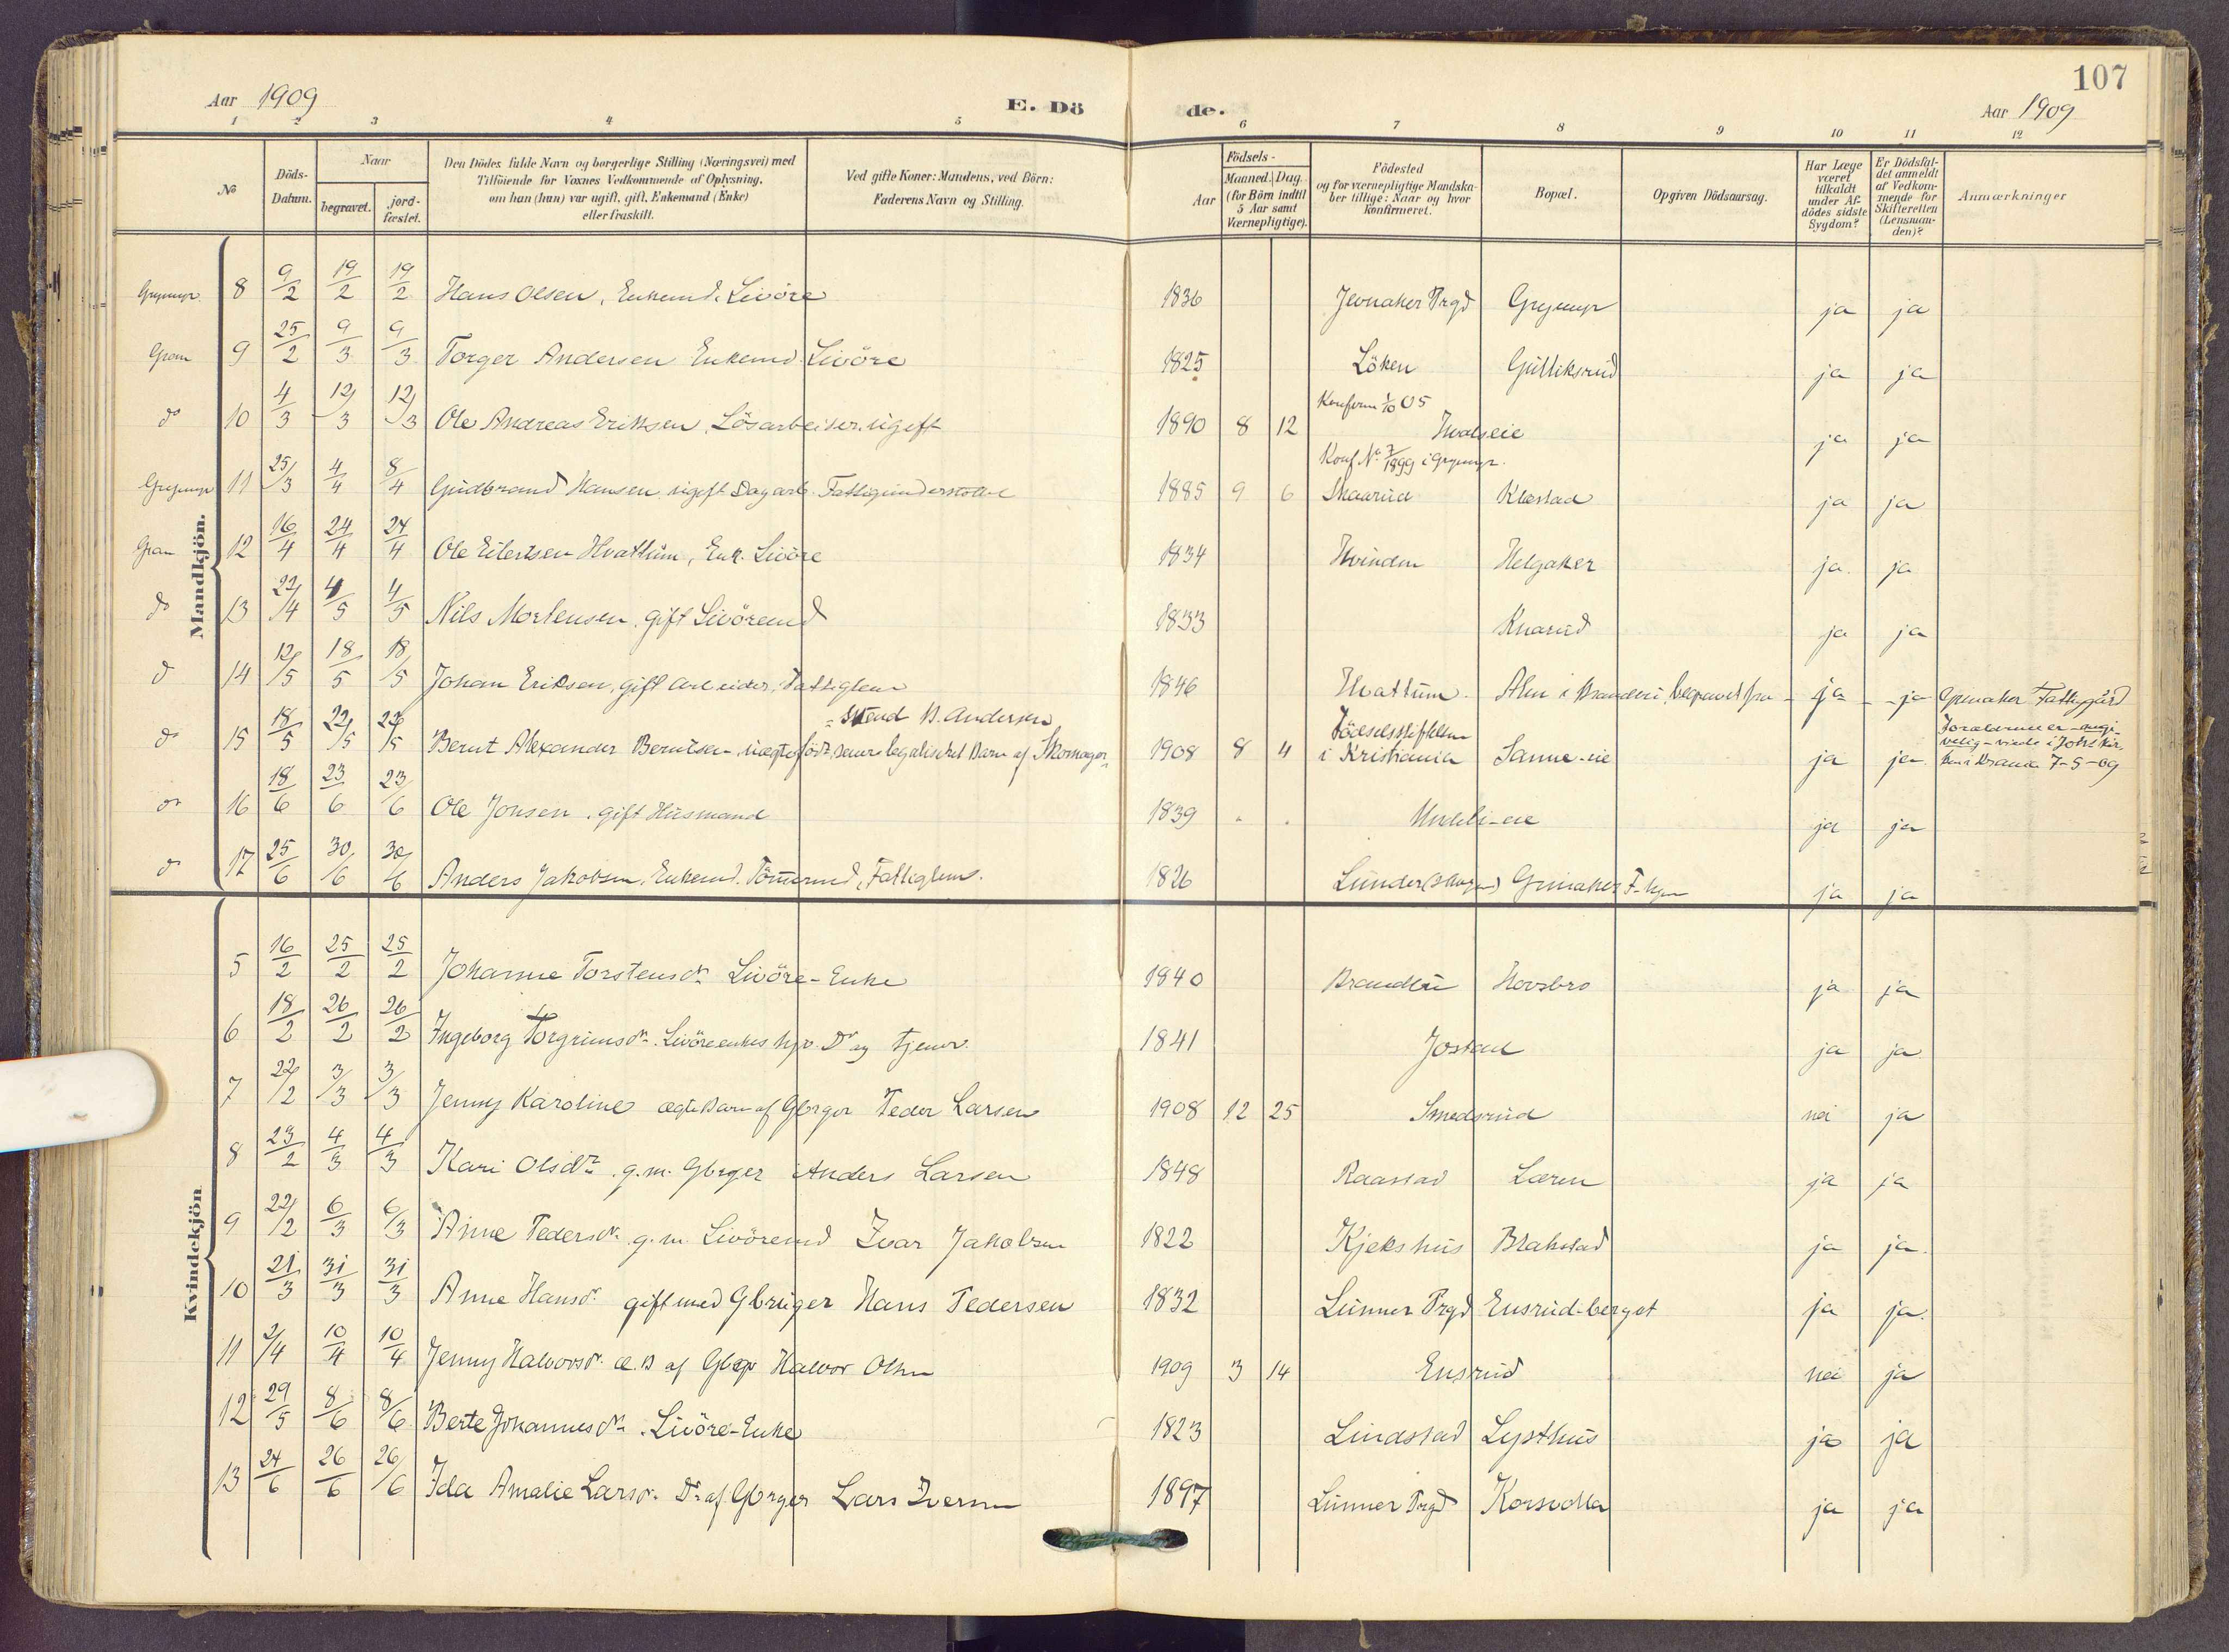 107
Aar 1909 E. Dö de. Aar 1909
1 2 3 4 5 6 7 8 9 10 11 12
No
Döds-Datum.
Naar
begravet.
jord-fæstet.
Den Dödes fulde Navn og borgerlige Stilling (Næringsvei) med
Tilföiende for Voxnes Vedkommende af Oplysning,
om han (hun) var ugift, gift, Enkemand (Enke)
eller fraskilt.
Ved gifte Koner: Mandens, ved Börn:
Faderens Navn og Stilling.
Födsels-
Aar
Maaned. Dag.
(for Börn indtil
5 Aar samt
Værnepligtige).
Födested
og for værnepligtige Mandska-
ber tillige: Naar og hvor
konfirmeret.
Bopæl.
Opgiven Dödsaarsag.
Har Læge
været
tilkaldt
under Af-
dödes sidste
Sygdom?
Er Dödsfal-
det anmeldt
af Vedkom-
mende for
Skifteretten
(Lensman-
den)?
Anmærkninger
Mandkjön.
Grymyr 8 9/2 19/2 19/2 Hans Olsen, Enkemd. Livöre 1836 Jevnaker Prgd Grymyr ja ja
Gran 9 25/2 9/3 9/3 Torger Andersen Enkemd. Livöre 1825 Löken Gulliksrud ja ja
do 10 4/3 12/3 12/3 Ole Andreas Eriksen, Lösarbeider, ugift 1890 8 12 Konfirm 1/10 05 Hvalseie ja ja
Grymyr 11 25/3 4/4 8/4 Gudbrand Hansen ugift Dagarb. Fattigunderstöttet 1885 9 6 Konf. No 7/1899 i Grymyr. Skaarud Klæstad ja ja
Gran 12 16/4 24/4 24/4 Ole Eilertsen Hvattum, Enk. Livöre 1834 Hvinden Helgaker ja. ja
do 13 22/4 4/5 4/5 Nils Mortensen, gift Livöremd 1833 Knarud ja ja
do 14 12/5 18/5 18/5 Johan Eriksen, gift arbeider, Fattiglem 1846 Hvattum. Alm i Brandbu, begravet fra ja ja Grinaker Fattiggård
do 15 18/5 22/5 22/5 Bernt Alexander Berntsen uægtefödt, senere legaliseret Barn af Skomager svend B. Andersen 1908 8 4 Födselsstiftelsen i Kristiania Sanne-eie ja ja Forældrene er ... viede i Johs kir ken i Krania 7-5-09
do 16 18/6 23/6 23/6 Ole Jonsen, gift Husmand 1839 . . Undeli-eie ja ja
do 17 25/6 30/6 30/6 Anders Jakobsen, Enkemd. Tömmermd, Fattiglem. 1826 Lunder Grinaker ja ja
Kvindekjön
5 16/2 25/2 25/2 Johanne Torstensdr. Livöre-Enke 1840 Brandbu Hovsbro ja ja
6 18/2 26/2 26/2 Ingeborg Torgrimsdr. Livöreenkes hjv. Dr og tjener. 1841 Jostad ja ja
7 22/2 3/3 3/3 Jenny Karoline ægte Barn af Gbrger Peder Larsen 1908 12 25 Smedsrud nei ja
8 23/2 4/3 4/3 Kari Olsdr. g.m. Gbrger Anders Larsen 1848 Raastad Læren ja ja
9 22/2 6/3 6/3 Anne Pedersdr. g.m. Livöremd Ivar Jakobsen 1822 Kjekshus Blakstad ja ja.
10 21/3 31/3 31/3 Anne Hansdr. gift med Gbruger Hans Pedersen 1832 Lunner Prgd Ensrud-berget ja ja.
11 2/4 10/4 10/4 Jenny Halvorsdr. æ. B af Gbgr Halvor Olsen 1909 3 14 Ensrud nei ja
12 29/5 8/6 8/6 Berte Johannesdr. Livöre-Enke 1823 Lindstad Lysthus ja ja
13 24/6 26/6 26/6 Ida Amalie Larsdr. Dr. af Gbrger Lars Iversen 1897 Lunner Prgd Korsvolla ja ja